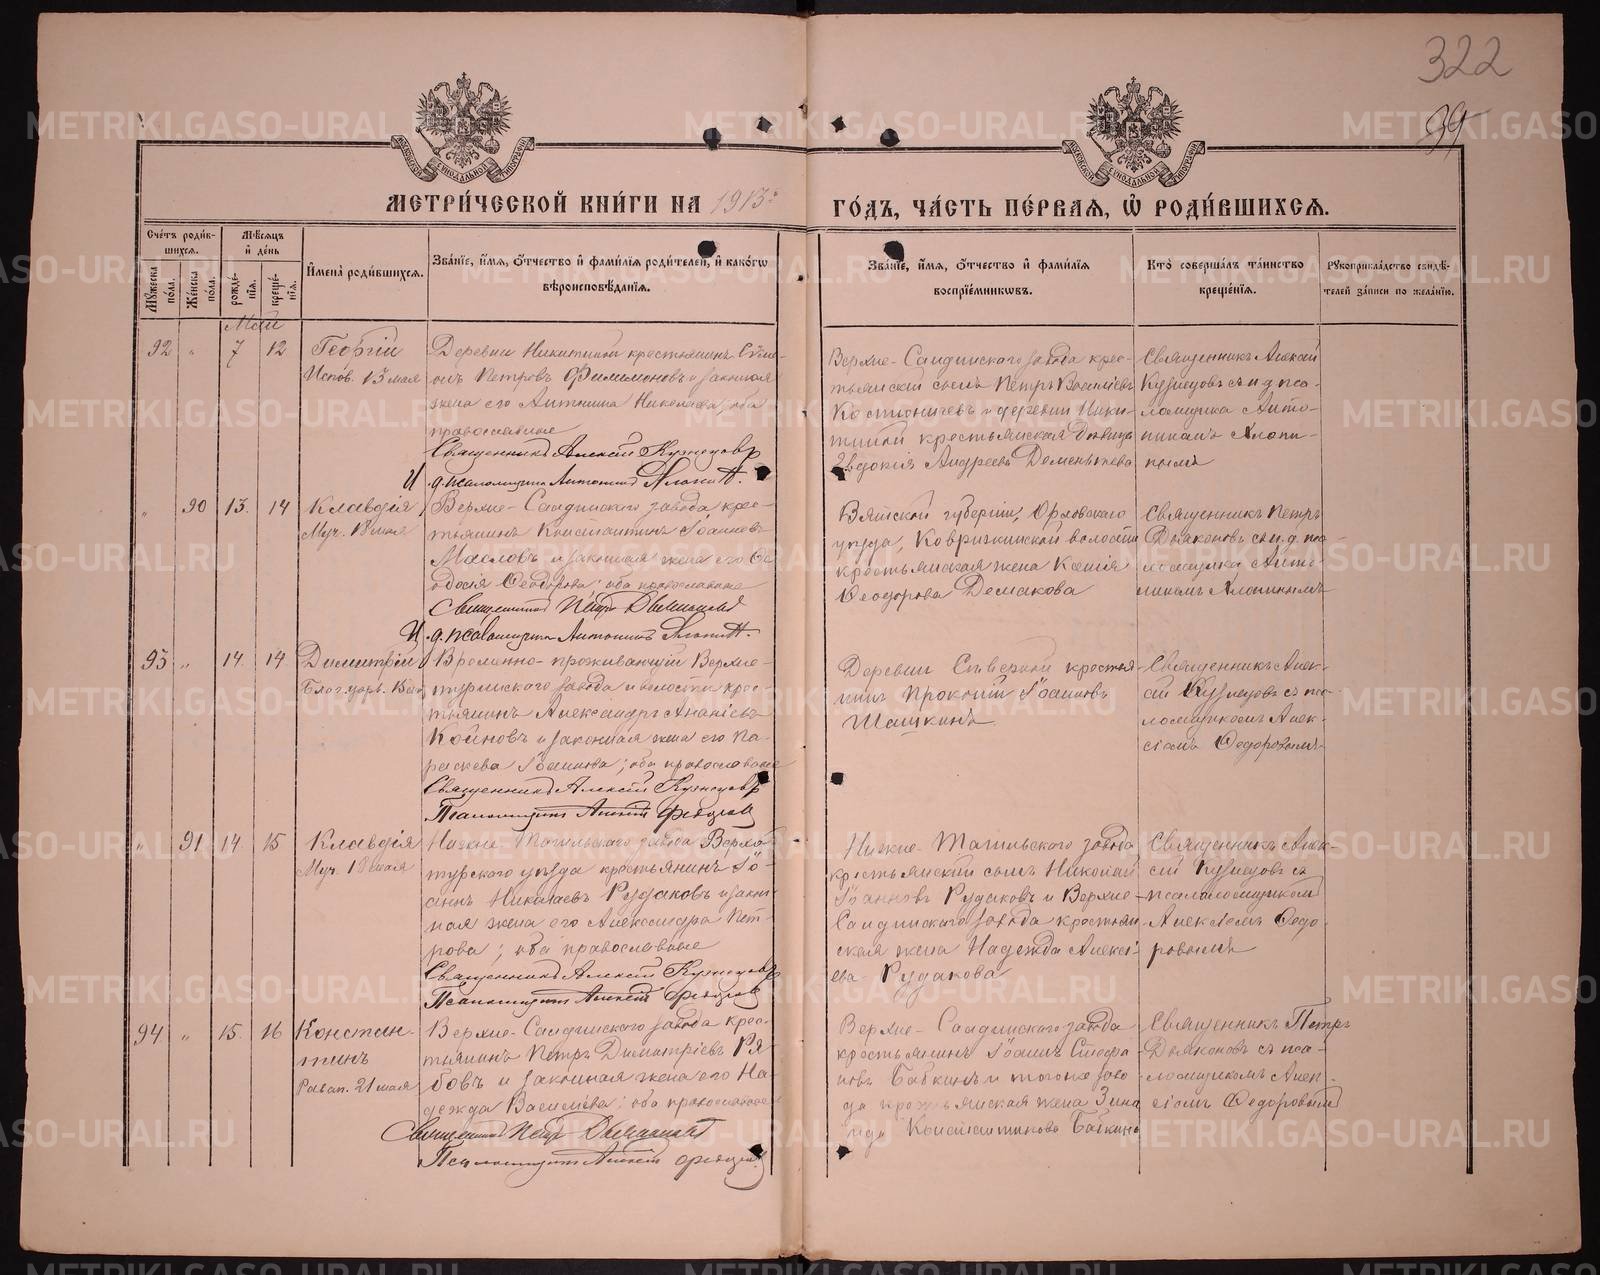 322
99
МЕТРИ́ЧЕСКОЙ КНИ́ГИ НА 1913 ГО́ДЪ, ЧА́СТЬ ПЕ́РВАЯ, Ѡ РОДИ́ВШИХСЯ.
Сче́тъ роди́вшихся.
Мѣ́сяцъ и де́нь
Мꙋ́жеска по́ла.
Же́нска по́ла.
рожде́нія.
креще́нія.
Имена̀ роди́вшихся.
Зва́ніе, и́мя, о́тчество и фами́лія роди́телей, и како́гѡ
вѣроисповѣ́данія.
Зва́ніе, и́мя, о́тчество и фами́лія
воспріе́мникѡвъ.
Кто̀ соверша́лъ та́инство
креще́нія.
Рꙋкоприкла́дство свидѣ́-
телей за́писи по жела́нію.
Май
92 " 7 12
Георгій
Испов. 13 мая
Деревни Никитиной крестьянинъ
Петровъ Филимоновъ и законная
жена его Антонина Николаева, оба
православные
Священникъ Алексій Кузнецовъ
И. д. псаломщика Антонинъ
Верхне-Салдинского завода крес-
тьянскій сынъ Петръ Васильевъ
и деревни Ники-
тиной крестьянская дѣвица
Евдокія Андреева Дементьева
Священникъ Алексій
Кузнецовъ съ и. д. пса-
ломщика Анто-
ниномъ
" 90 13 14
Клавдія
Муч. 18 мая
Верхне-Салдинского завода крес-
тьянинъ Константинъ Іоанновъ
Масловъ и законная жена его Ѳе-
досія Ѳеодорова; оба православные
Священникъ Петръ
И. д. псаломщика Антонинъ
Вятской губерніи, Орловскаго
уѣзда, Ковригинской волости
крестьянская жена Ксенія
Ѳеодорова Демакова
Священникъ Петръ
Дьяконовъ съ и. д. пса-
ломщика Анто-
ниномъ
93 " 14 14
Димитрій
Благ. цар.
Временно-проживающій Верхне-
туринского завода и волости крес-
тьянинъ Александръ Ананіевъ
Койновъ и законная жена его Па-
раскева Іоаннова; оба православные
Священникъ Алексій Кузнецовъ
Псаломщикъ Алексій Ѳедоровъ
Деревни Сѣверной крестья-
нинъ Прокопій Іоанновъ
Шашкинъ
Священникъ Алек-
сій Кузнецовъ съ пса-
ломщикомъ Алек-
сіемъ Ѳедоровымъ
" 91 14 15
Клавдія
Муч. 18 мая
Нижне-Тагильского завода Верхо-
турского уѣзда крестьянинъ Іо-
аннъ Николаевъ Рудаковъ и закон-
ная жена его Александра Пет-
рова; оба православные
Священникъ Алексій Кузнецовъ
Псаломщикъ Алексій Ѳедоровъ
Нижне-Тагильского завода
крестьянскій сынъ Николай
Іоанновъ Рудаковъ и Верхне-
Салдинского завода крестьян-
ская жена Надежда Алексі-
ева Рудакова
Священникъ Алек-
сій Кузнецовъ съ
псаломщикомъ
Алексіемъ Ѳедо-
ровымъ
94 " 15 16
Констан-
тинъ
Равноап. 21 мая
Верхне-Салдинского завода крес-
тьянинъ Петръ Димитріевъ Ря-
бовъ и законная жена его На-
дежда Васильева; оба православные
Священникъ Петръ
Псаломщикъ Алексій Ѳедоровъ
Верхне-Салдинского завода
крестьянинъ Іоаннъ Стефа-
новъ Бабкинъ и того же заво-
да крестьянская жена Зина-
ида Константинова Бабкина
Священникъ Петръ
Дьяконовъ съ пса-
ломщикомъ Алек-
сіемъ Ѳедоровымъ
METRIKI.GASO-URAL.RU